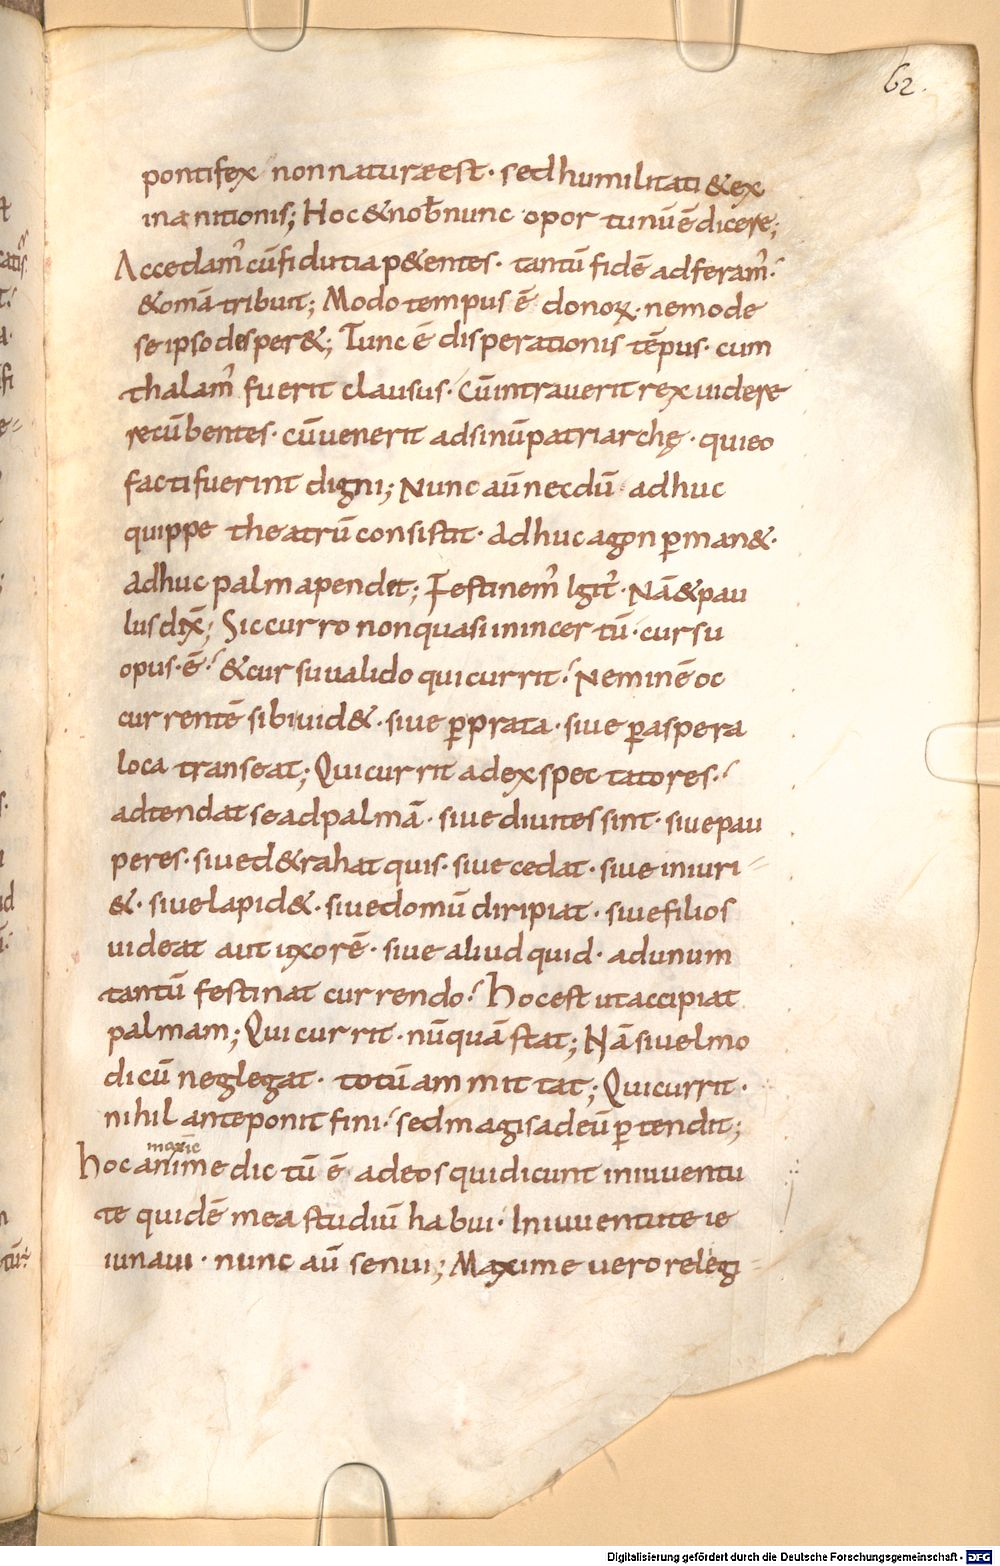 62.
pontifex non naturae est· sed humilitati & ex
inanitionis; Hoc & nob̄ nunc oportunū ē dicere;
Accedam᷒ cū fidutia p&entes· tantū fidē adferam᷒·
& om̄a tribuit; Modo tempus ē donoꝝ· nemo de
se ipso desper&; Tunc ē disperationis tēpus· cum
thalam᷒ fuerit clausus· Cū intrauerit rex uidere
recūbentes· cū uenerit ad sinū patriarchę· qui eo
facti fuerint digni; Nunc aū necdū adhuc
quippe theatrū consistit· Adhuc agon ꝑman&·
Adhuc palma pendet; Festinem᷒ Igit᷒· Nā & pau
lus dix̄; Sic curro non quasi in incertū· cursu
opus· ē· & cursu ualido qui currit· Neminē oc
currentē sibi uid&· siue ꝑ prata· siue ꝑ aspera
loca transeat; Qui currit ad exspectatores·
adtendat se ad palmā· siue diuites sint· siue pau
peres· siue d&rahat quis· siue cedat· siue iniuri
&· siue lapid&· siue domū diripiat· siue filios
uideat aut uxorē· siue aliud quid· ad unum
tantū festinat currendo· hoc est ut accipiat
palmam; Qui currit· nūquā stat; Nā si uel mo
dicū neglegat· totū ammittat; Qui currit·
nihil anteponit fini· sed magis ad eū ꝑtendit;
maxīe
hoc anime dictū ē ad eos qui dicunt in iuuentu
te quidē mea studiū habui· In iuuentute ie
iunaui· nunc aū senui; Maxime uero releg
Digitalisierung gefördert durch die Deutsche Forschungsgemeinschaft - DFG